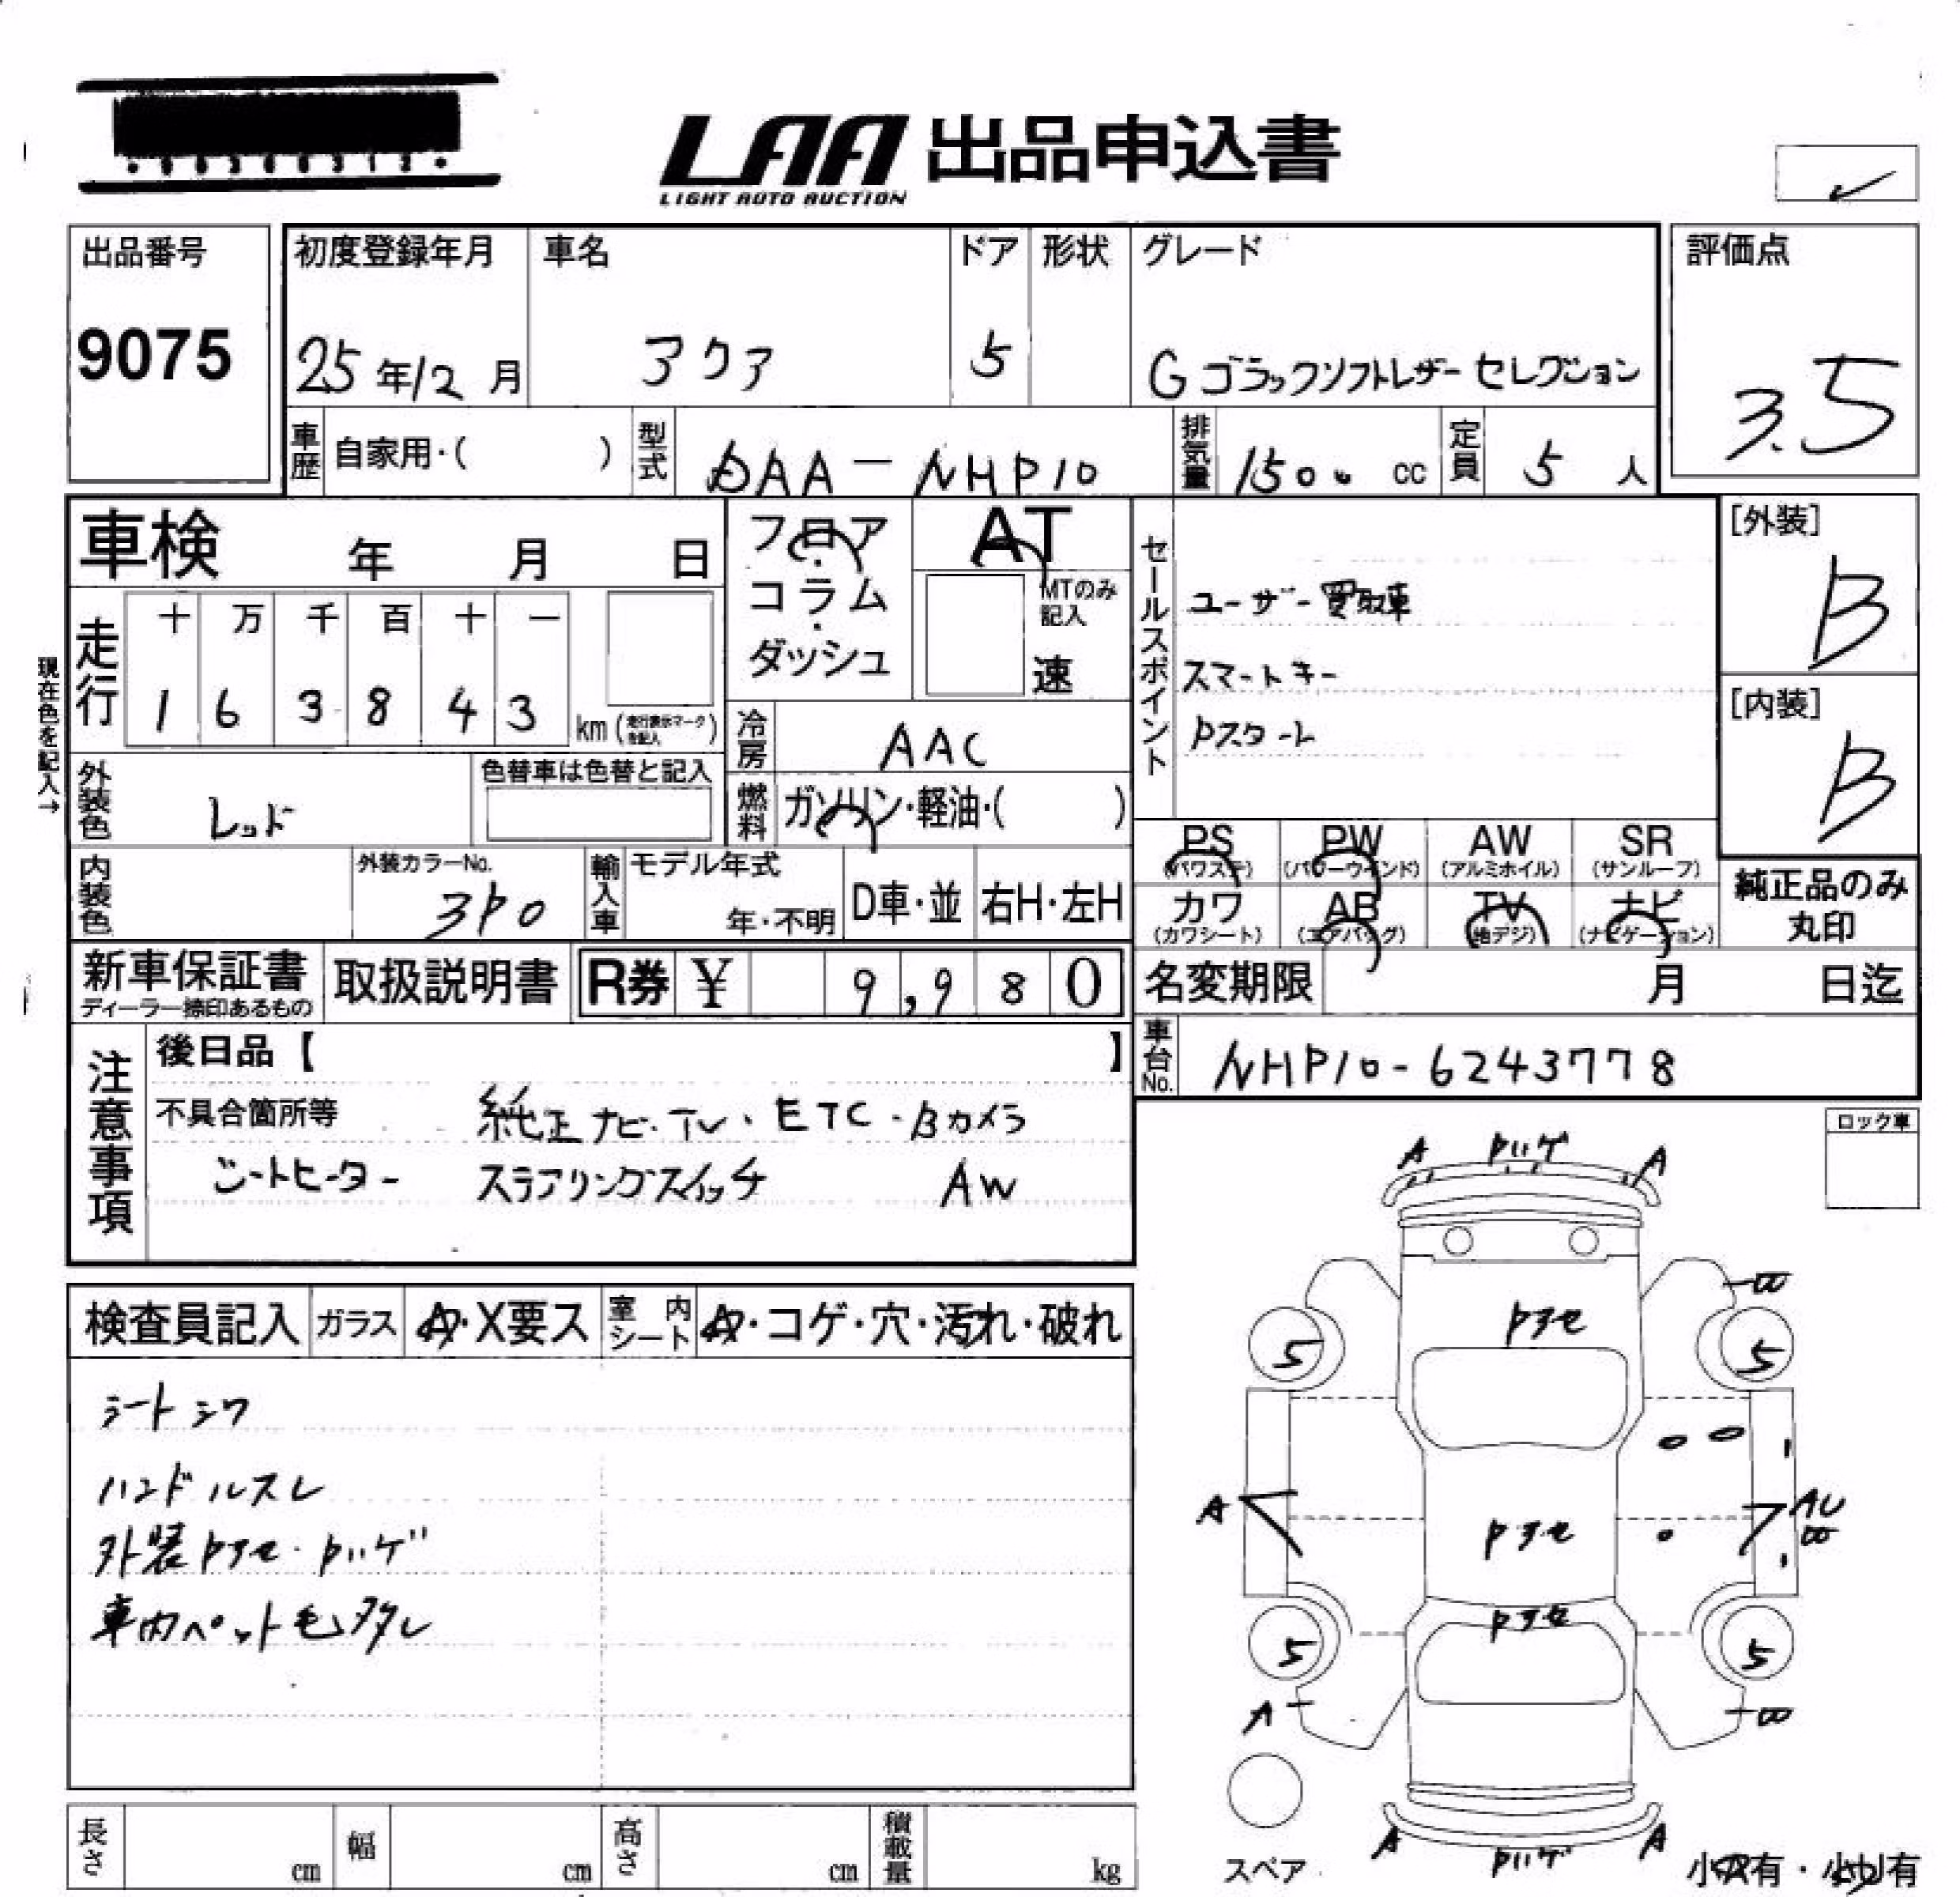 LAA 出品申込書
LIGHT AUTO AUCTION
出品番号
9075
初度登録年月
25年12月
車名
アクア
ドア
5
形状
グレード
Gブラックソフトレザーセレクション
評価点
3.5
車歴 自家用・( )
型式 DAA-NHP10
排気量 1500 cc
定員 5 人
車検 年 月 日
フロア・コラム・ダッシュ
AT
MTのみ記入
速
走行
十 万 千 百 十 一
1 6 3 8 4 3 km (走行表示マークを記入)
現在色を記入→
冷房 AAC
燃料 ガソリン・軽油・( )
外装色 レッド
色替車は色替と記入
内装色
外装カラーNo.
3P0
輸入車 モデル年式
年・不明
D車・並
右H・左H
セールスポイント
ユーザー買取車
スマートキー
Pスタート
[外装]
B
[内装]
B
PS (パワステ) PW (パワーウインド) AW (アルミホイル) SR (サンルーフ)
カワ (カワシート) AB (エアバッグ) TV (地デジ) ナビ (ナビゲーション)
純正品のみ丸印
新車保証書
ディーラー捺印あるもの
取扱説明書
R券 ¥ 9,980
名変期限 月 日迄
車台No. NHP10-6243778
注意事項
後日品【 】
不具合箇所等 純正ナビ・TV・ETC・Bカメラ
シートヒーター ステアリングスイッチ AW
ロック車
検査員記入 ガラス A・X要ス 室内シート A・コゲ・穴・汚れ・破れ
シートシワ
ハンドルスレ
外装Pアセ・Pハゲ
車内ペット毛多タシ
A Pハゲ A
Pアセ
5 5
A Pアセ AU
Pアセ
5 5
A
A Pハゲ A
スペア
小A有・小U有
長さ cm 幅 cm 高さ cm 積載量 kg